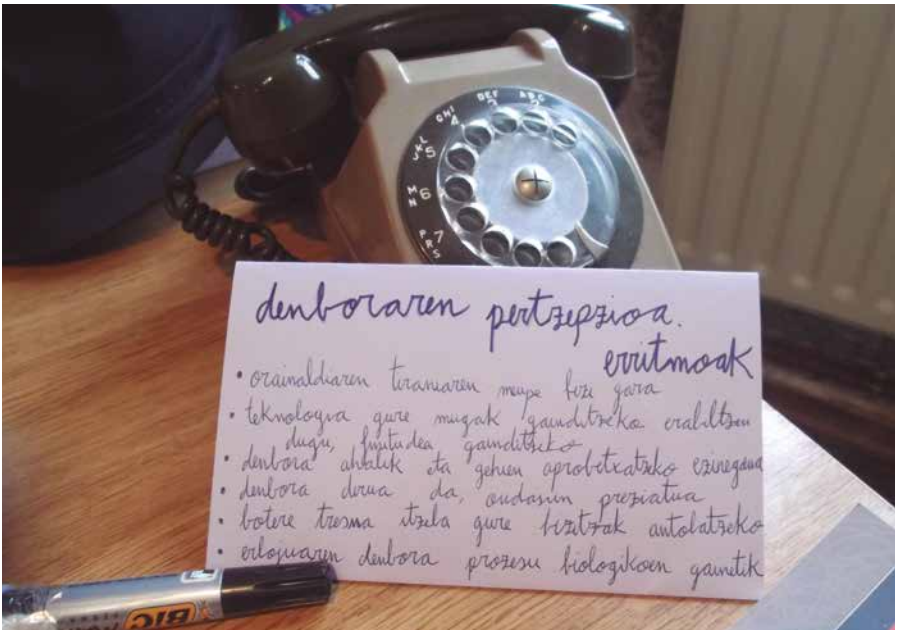 ABC 2
DEF 3
GHI 4
JKL 5
MN 6
PRS 7
denboraren pertzepzioa.
erritmoak
• orainaldiaren tiraniaren menpe bizi gara
• teknologia gure mugak gainditzeko erabiltzen
dugu, finitudea gainditzeko
• denbora ahalik eta gehien aprobetxatzeko ezinegona
• denbora dirua da, ondasun preziatua
• botere tresna itzela gure bizitzak antolatzeko
• erlojuaren denbora prozesu biologikoen gainetik
BIC